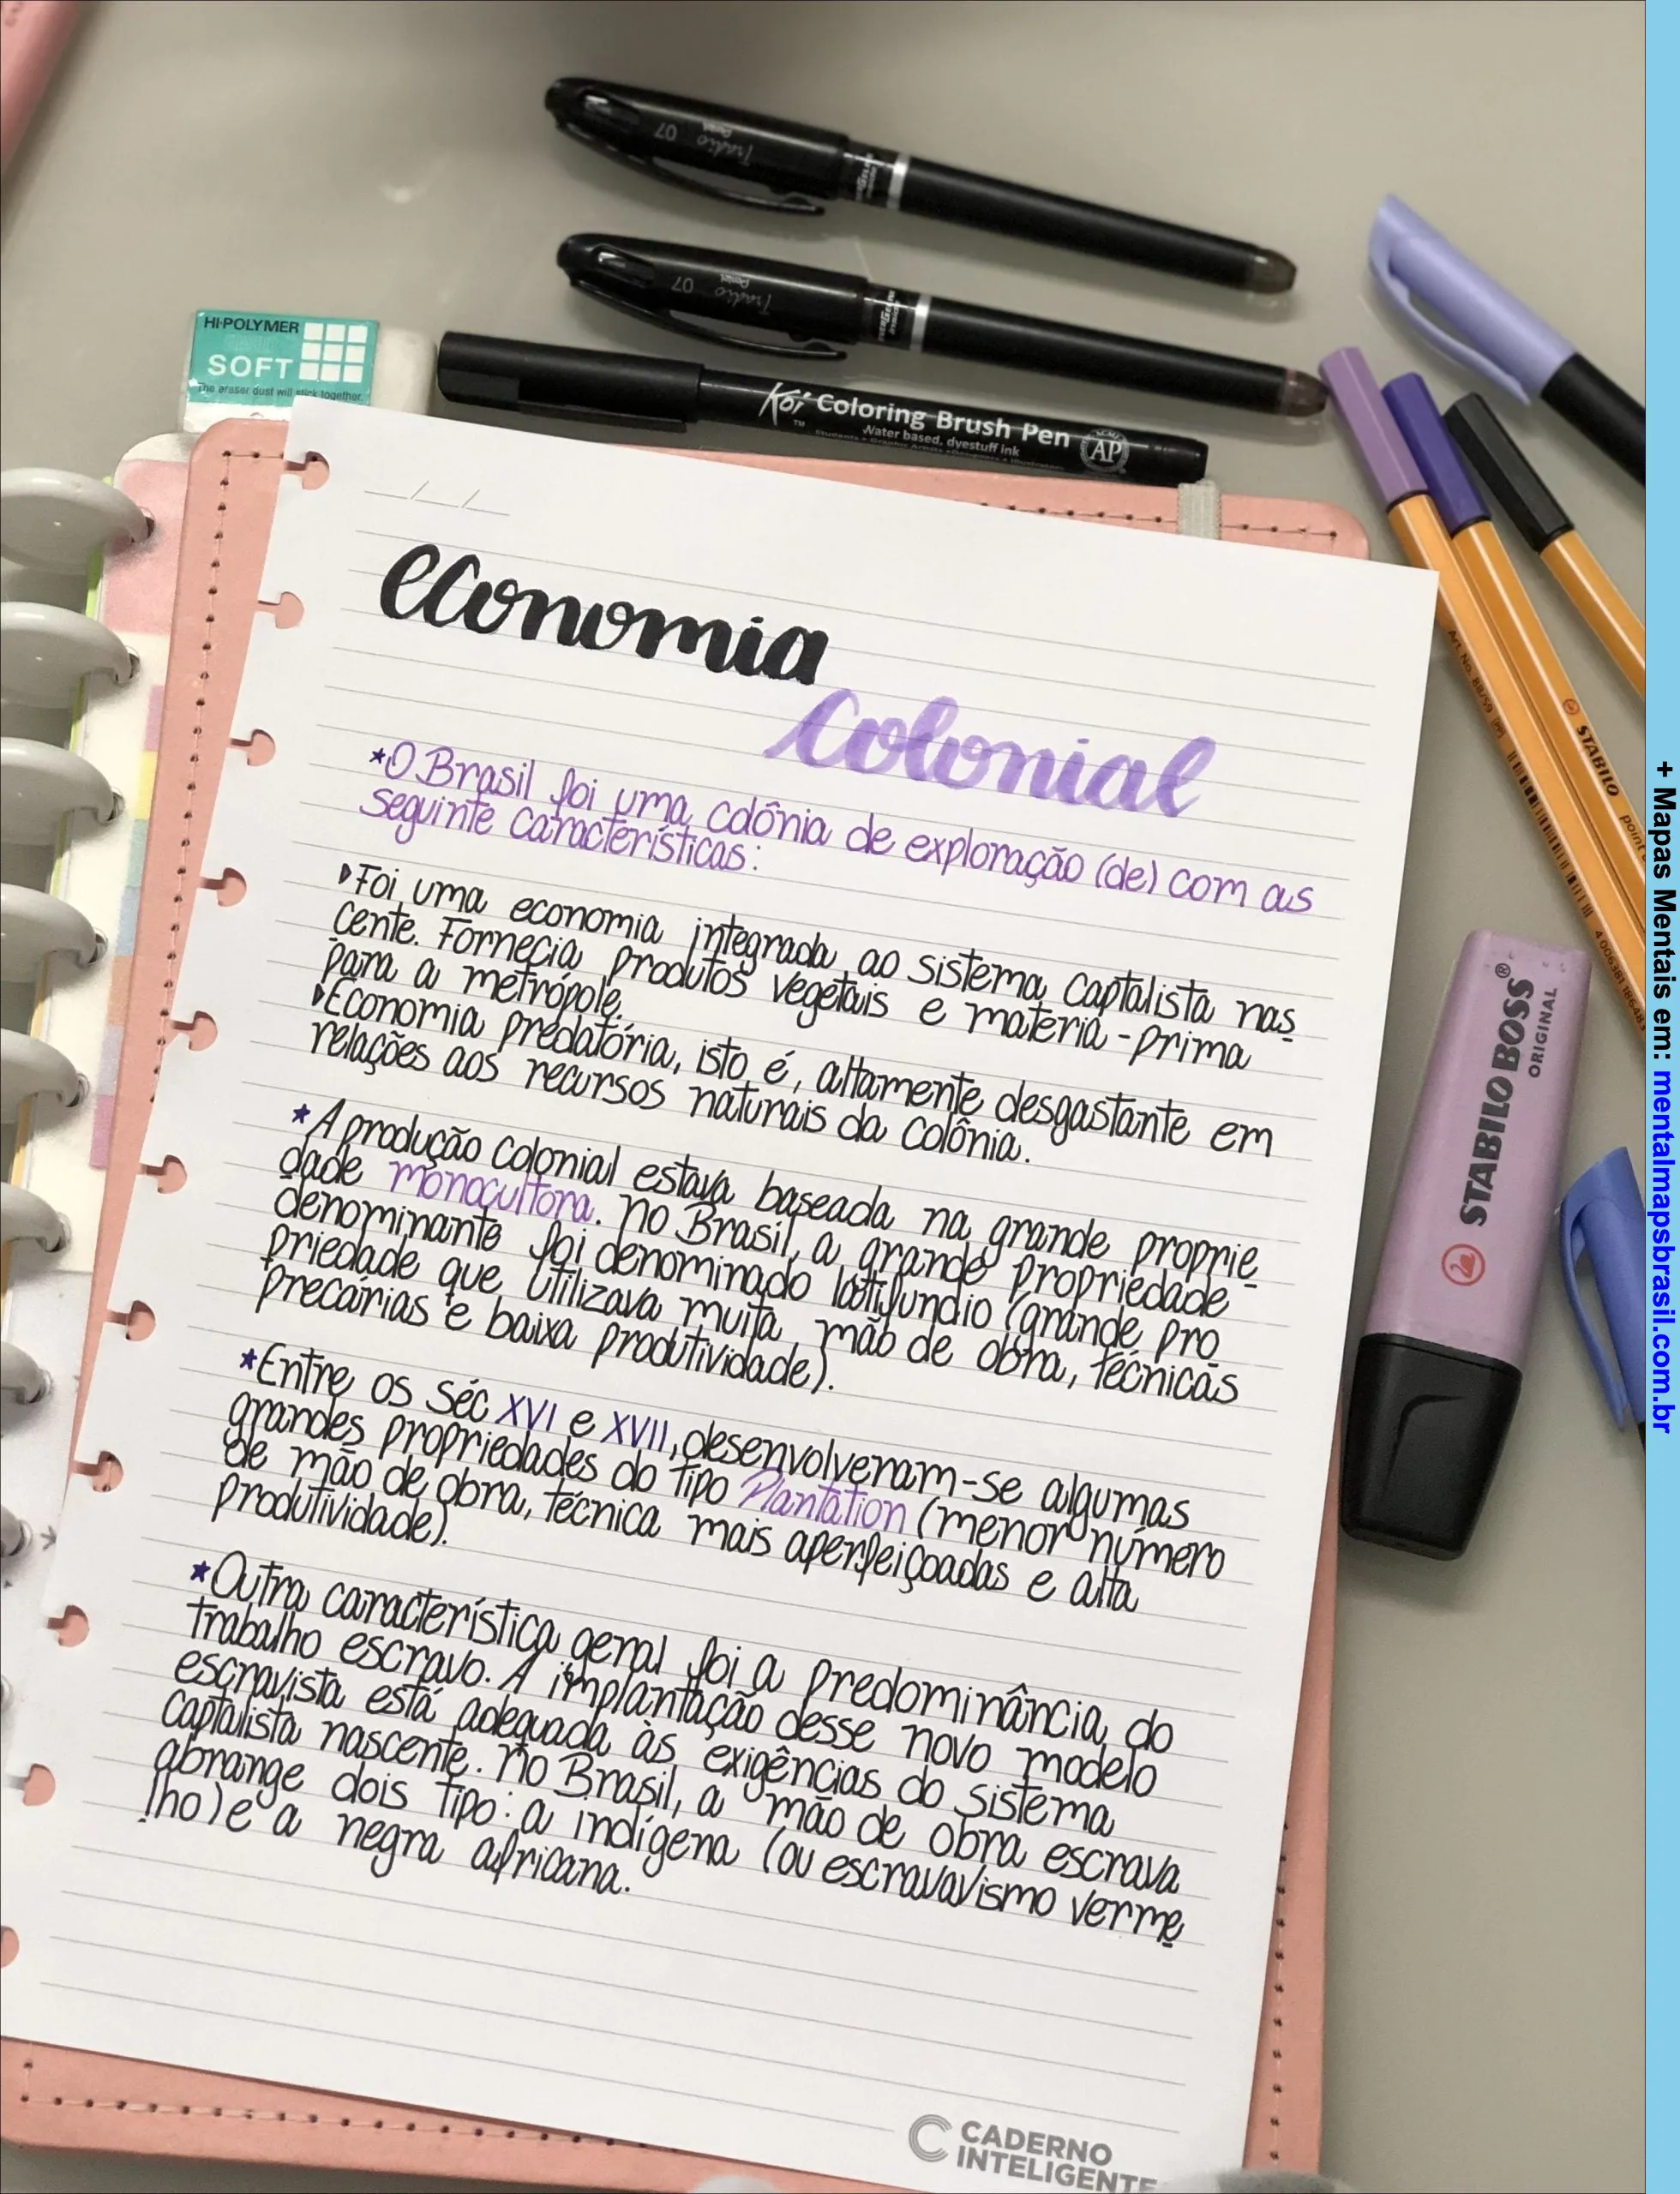 Tradio 07
Pentel
Tradio 07
Pentel
HI-POLYMER
SOFT
The eraser dust will stick together.
Koi Coloring Brush Pen
TM
Water based, dyestuff ink
ACMI
AP
economia
colonial
*O Brasil foi uma colônia de exploração (de) com as
seguinte características:
Foi uma economia integrada ao sistema captalista nas
cente. Fornecia produtos vegetais e materia-prima
para a metrópole.
Economia predatória, isto é, altamente desgastante em
relações aos recursos naturais da colônia.
*A produção colonial estava baseada na grande proprie
dade monocultora. No Brasil, a grande propriedade
denominante foi denominado latifundio (grande pro
priedade que utilizava muita mão de obra, técnicas
precárias e baixa produtividade).
*Entre os séc XVI e XVII, desenvolveram-se algumas
grandes propriedades do tipo Plantation (menor número
de mão de obra, técnica mais aperfeiçoadas e alta
produtividade).
*Outra característica geral foi a predominância do
trabalho escravo. A implantação desse novo modelo
escravista está adequada às exigências do sistema
captalista nascente. No Brasil, a mão de obra escrava
abrange dois tipo: a indígena (ou escravavismo verme
lho) e a negra africana.
CADERNO
INTELIGENTE
STABILO BOSS®
ORIGINAL
Art. No. 88/59
STABILO
point
+ Mapas Mentais em: mentalmapsbrasil.com.br